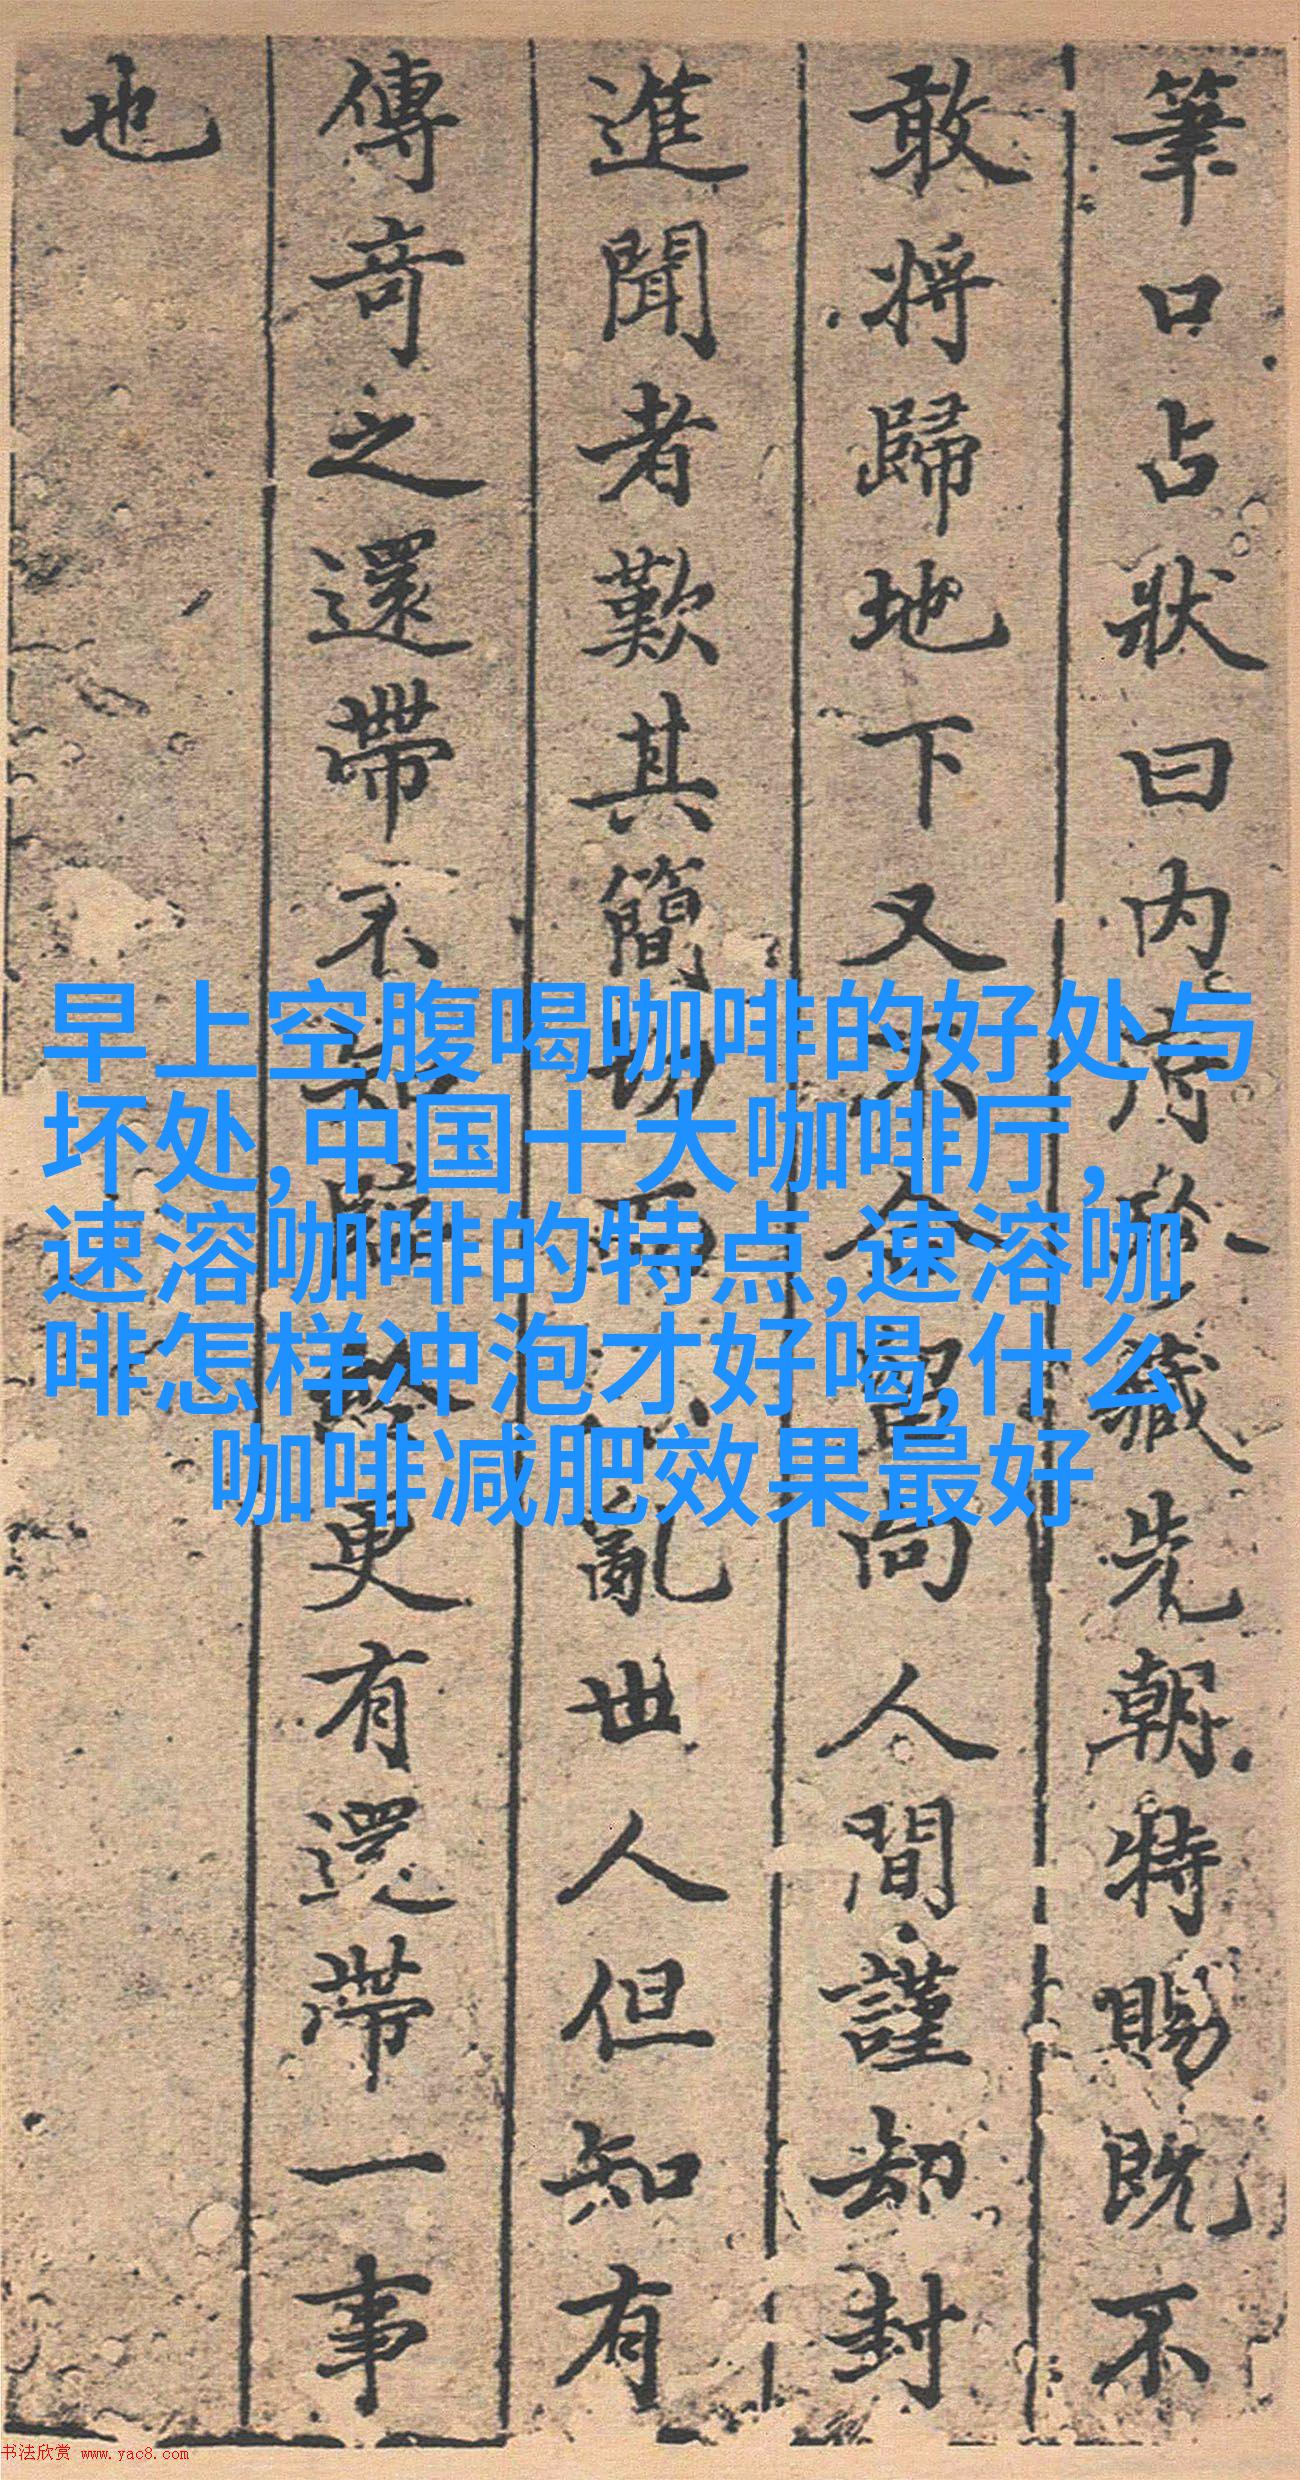 筆口占狀曰内府珍藏先朝特賜既不
敢將歸地下又不合留向人間謹却封
進聞者歎其簡切而亂世人但知有
傳奇之還帶不知更有還帶一事
也
早上空腹喝咖啡的好处与
坏处,中国十大咖啡厅，
速溶咖啡的特点,速溶咖
啡怎样冲泡才好喝,什么
咖啡减肥效果最好
书法欣赏 www.yac8.com